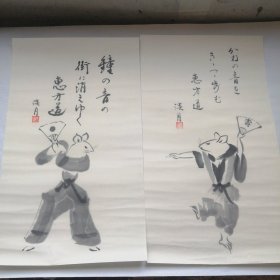 鐘の音の
街に消えゆく
恵方道
渓月
かねの音を
きゝつ歩む
恵方道
渓月